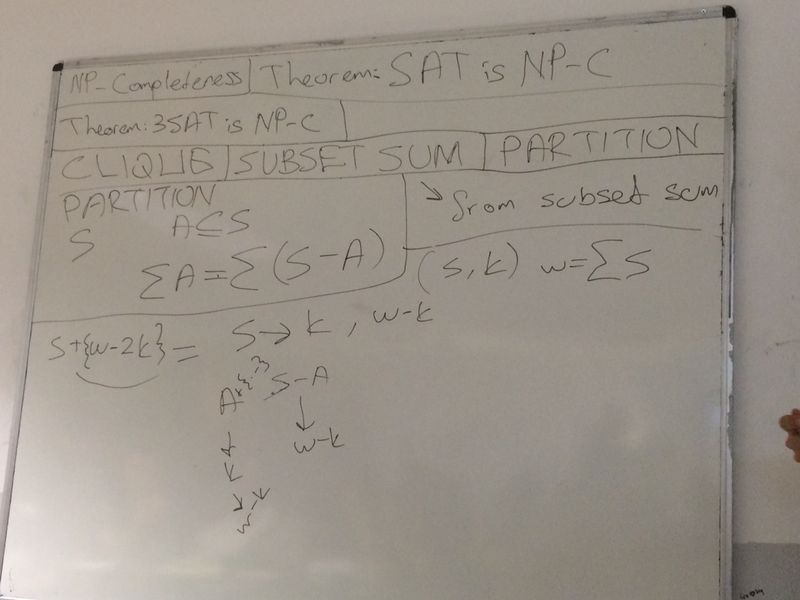 NP-Completeness | Theorem: SAT is NP-C
Theorem: 3SAT is NP-C
CLIQUE | SUBSET SUM | PARTITION
PARTITION
S A⊆S
ΣA=Σ(S-A)
↘ from subset sum
(S,k) w=ΣS
S+{w-2k} = S→k, w-k
A+{..} S-A
↓ ↓
k w-k
↓
w-k